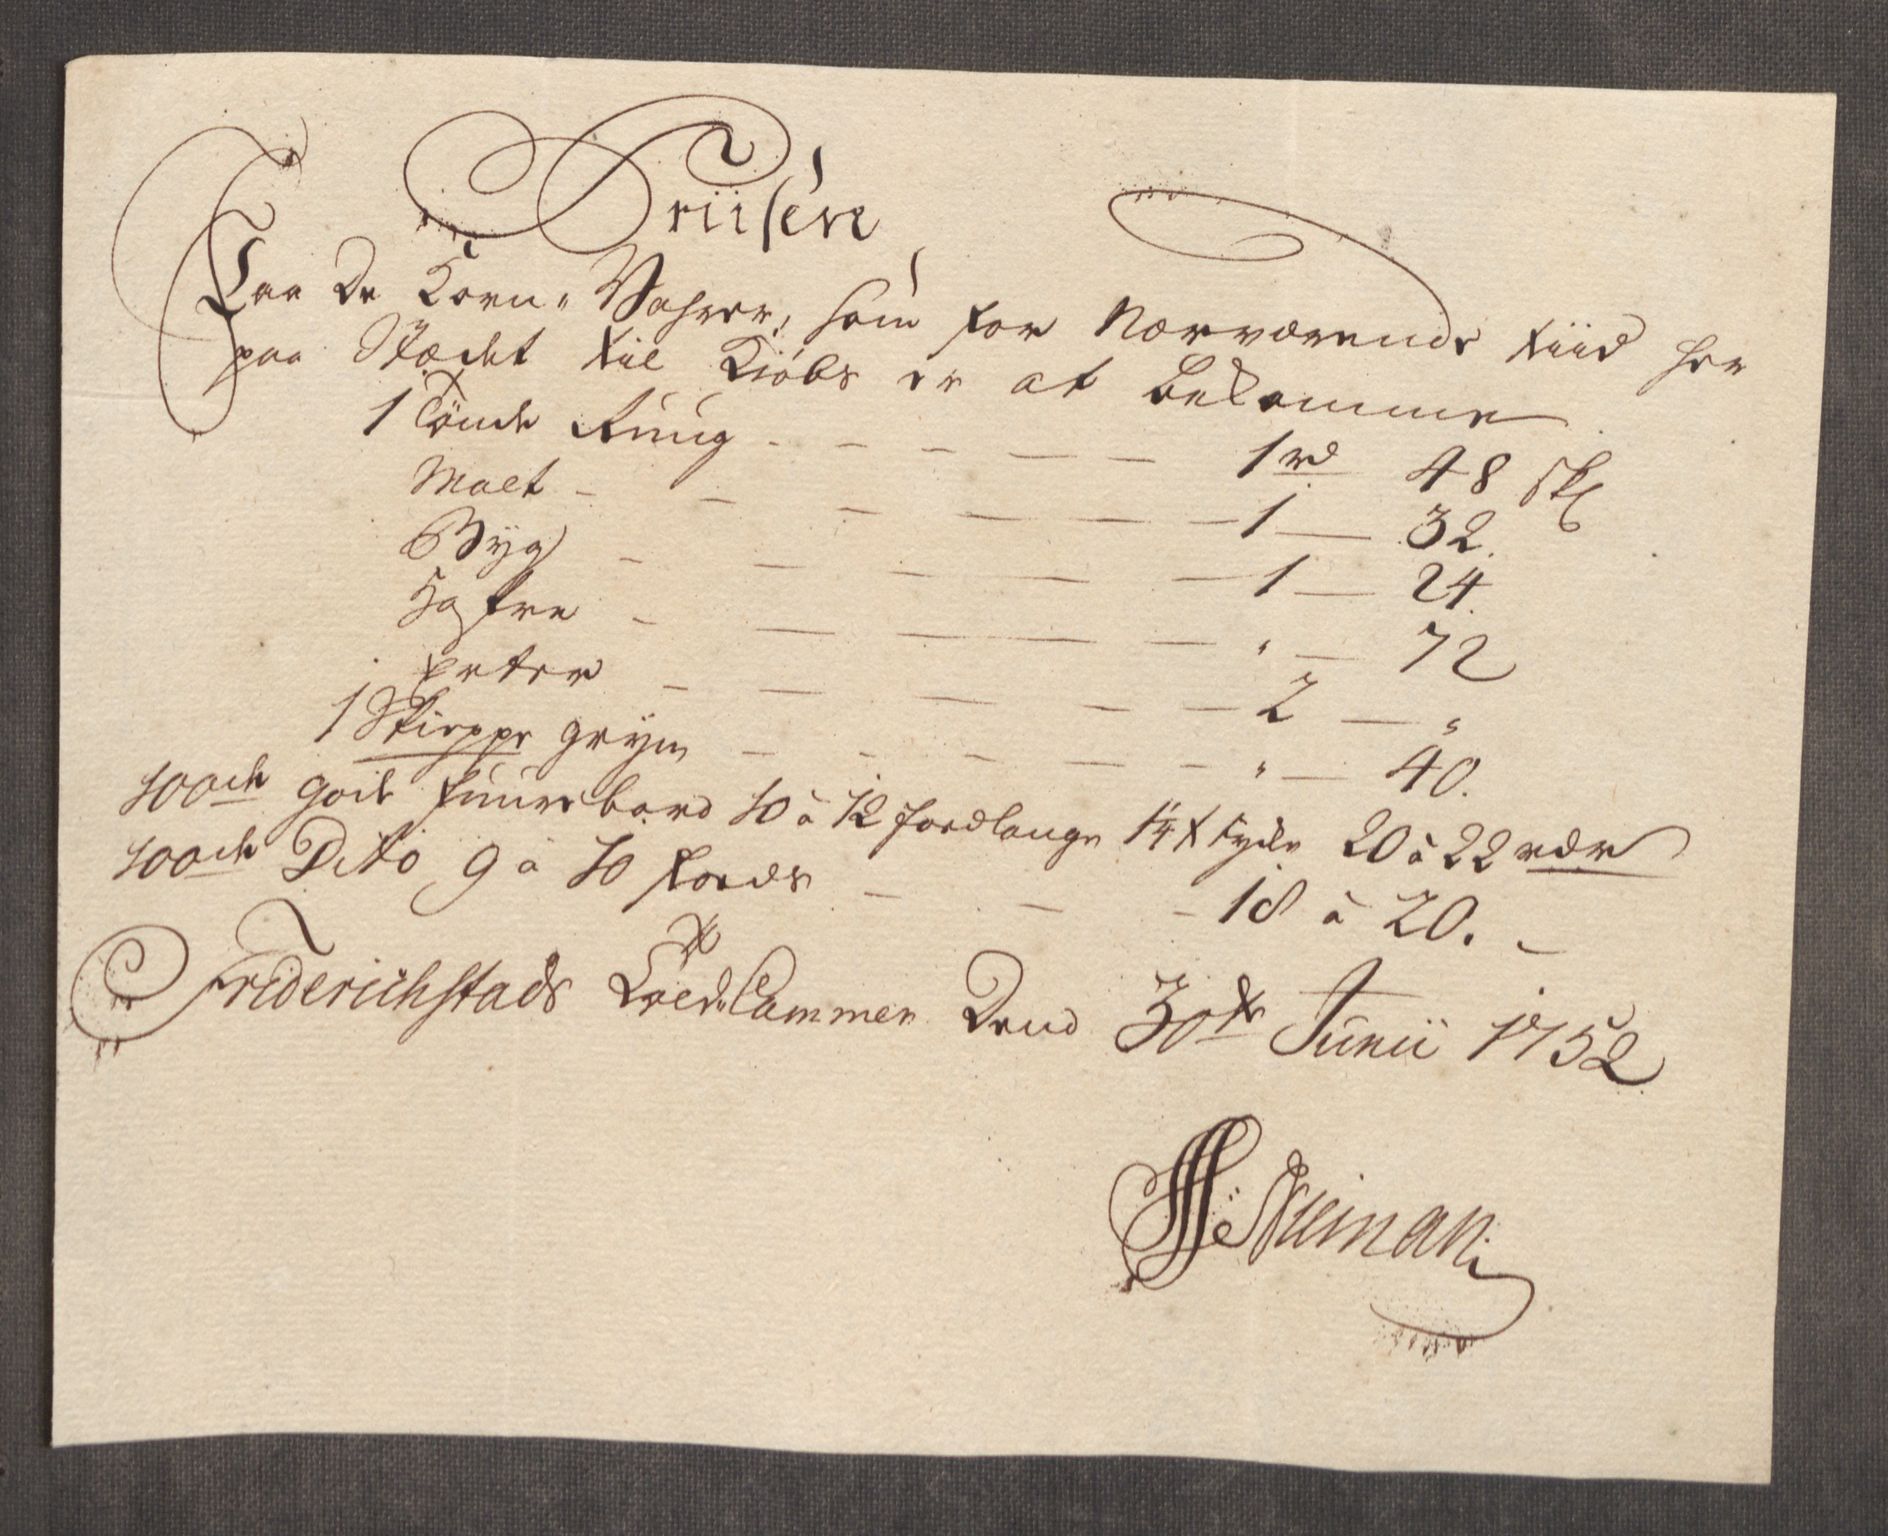 Priisene
Paa De Korn-Vahrer, som for Nærværende tiid her
paa Stædet til Kiøbs er at bekomme
1 Tönde Rüug - - - - - 1 rd 48 skl
Malt - - - - - - 1 — 32.
Byg - - - - - 1 — 24.
Hafre - - - - - " — 72
Erter - - - - - 2 — "
1 Skieppe gryn - - - - - " — 40.
100de gode fuurebord 10 à 12 foedlange 1¼ t tyke 20 à 22 rdr
100de Dito 9 à 10 foeds - - - 18 à 20. -
Friderichstads Told-Cammer Dend 30te Junii 1752